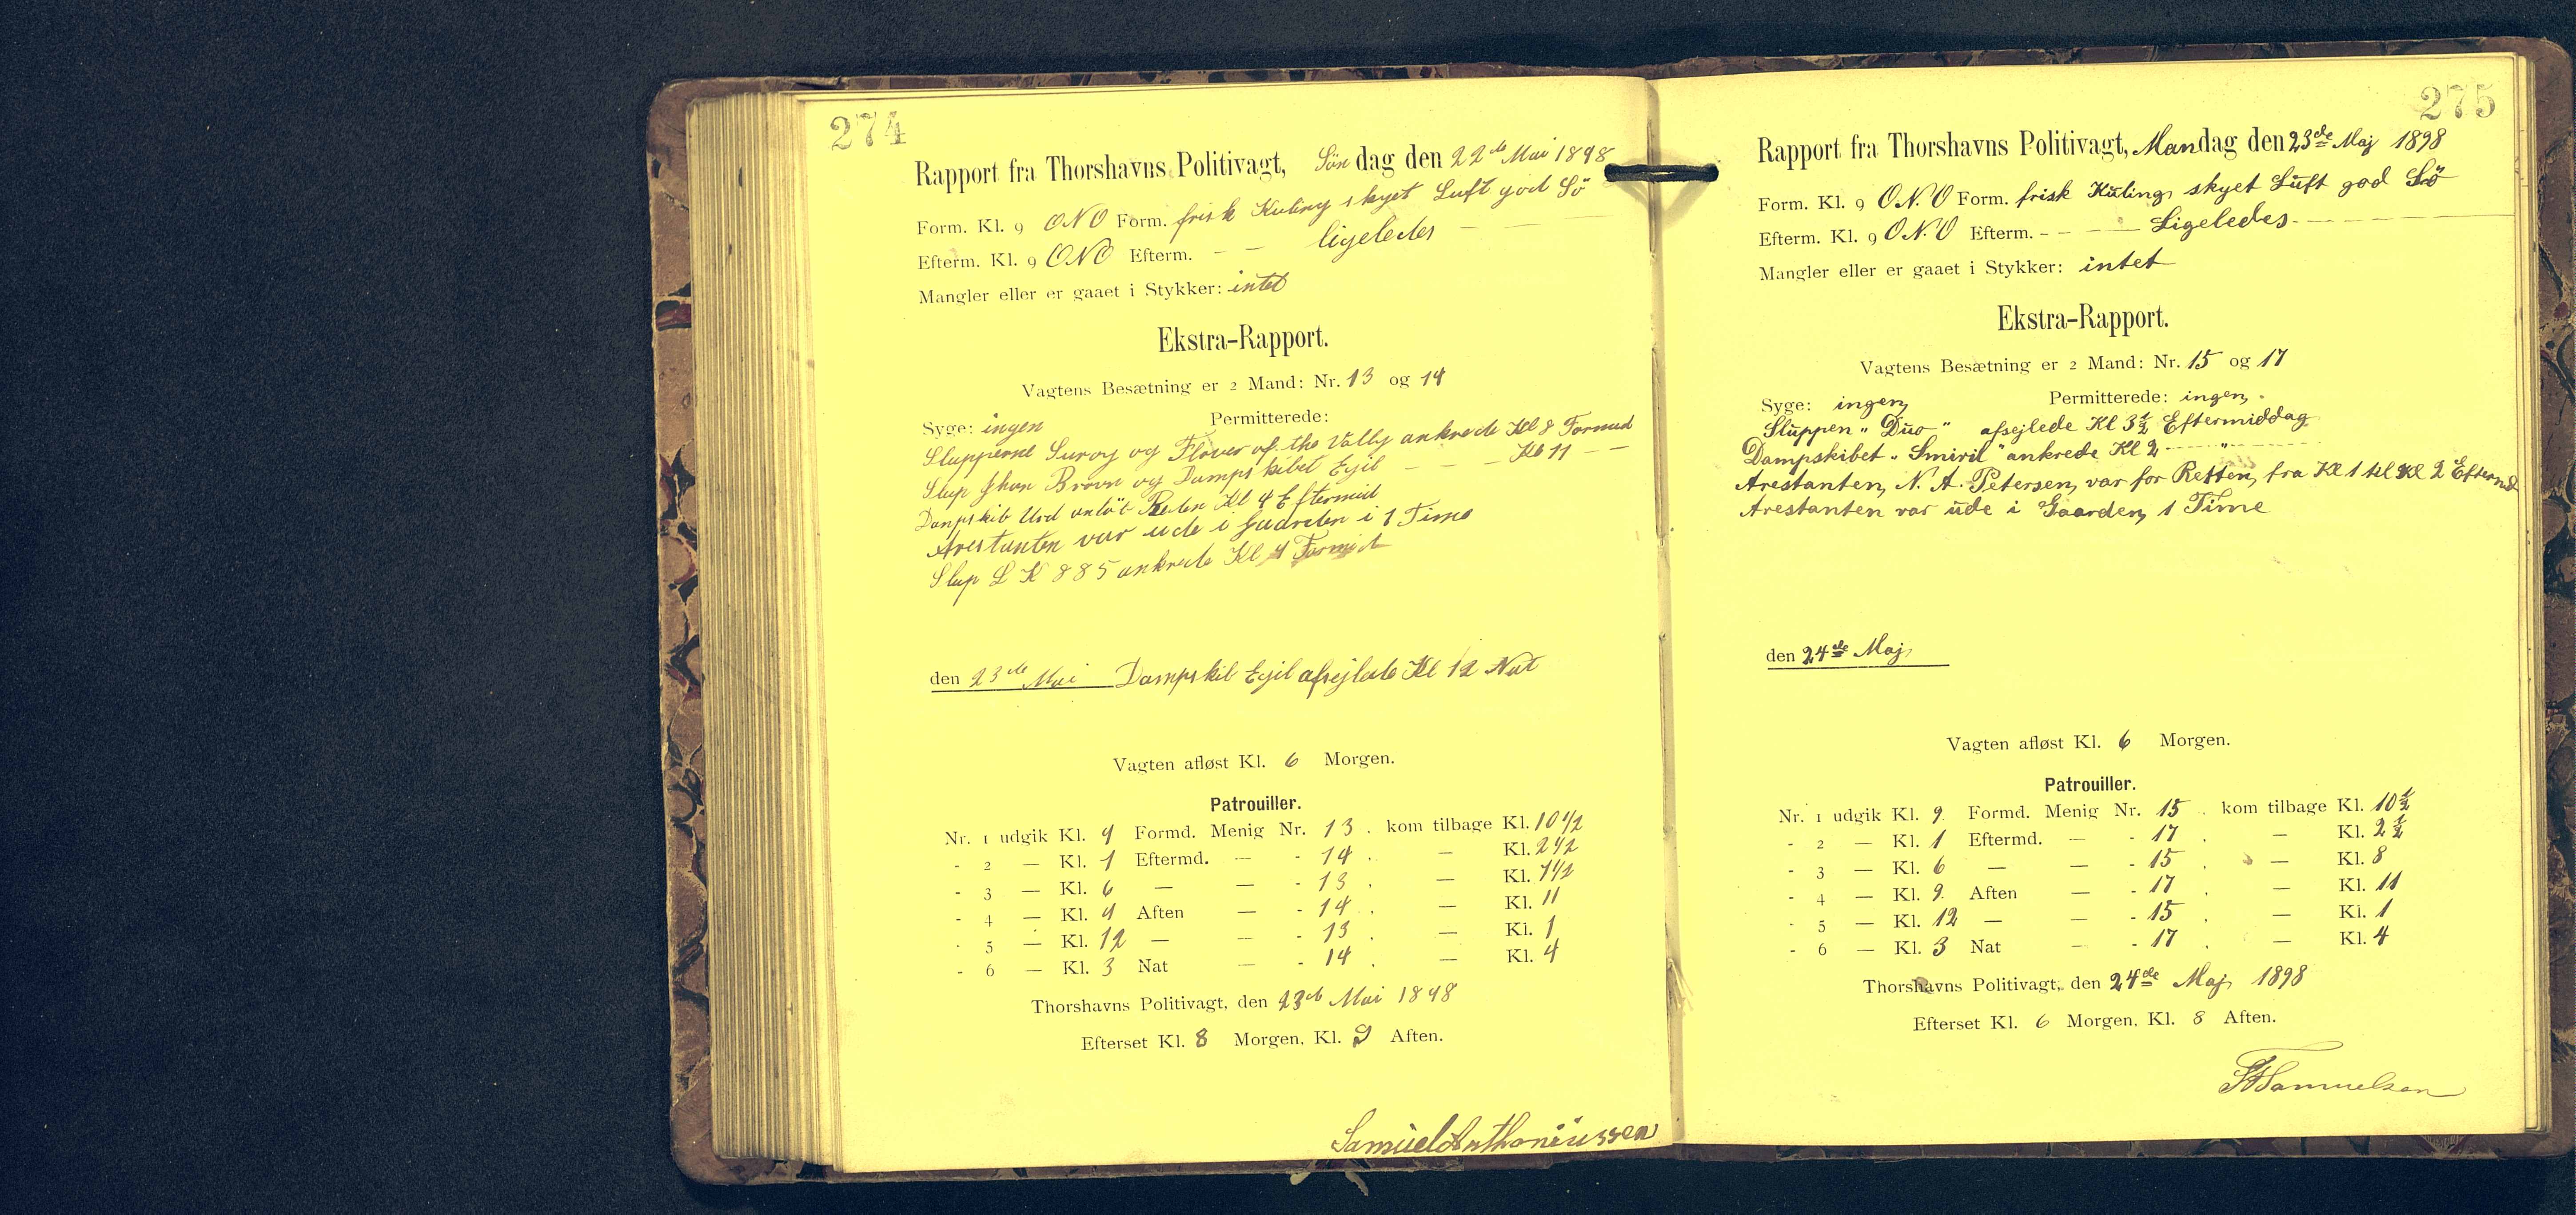 274
Rapport fra Thorshavns Politivagt, Søn dag den 22de Mai 1898
Form. Kl. 9 ONO Form. frisk Kuling skyet Luft god Sö
Efterm. Kl. 9 ONO Efterm. - - ligeledes - -
Mangler eller er gaaet i Stykker: intet
Ekstra-Rapport.
Vagtens Besætning er 2 Mand: Nr. 13 og 14
Syge: ingen Permitterede:
Slupperne Suroy og Flover of the Vally ankrede Kl 8 Formid
Slup Jhon Brovn og Dampskibet Egil - - - Kl 11 - -
Dampskib Urd anlöb Reden Kl 4 Eftermid
Arestanten var ude i Gaarden i 1 Time
Slup L K 885 ankrede Kl 4 Formid
den 23de Mai Dampskib Egil afsejlede Kl 12 Nat
Vagten afløst Kl. 6 Morgen.
Patrouiller.
Nr. 1 udgik Kl. 9 Formd. Menig Nr. 13 . kom tilbage Kl. 10 1/2
- 2 — Kl. 1 Eftermd. — - 14 . — Kl. 2 1/2
- 3 — Kl. 6 — — - 13 . — Kl. 7 1/2
- 4 — Kl. 9 Aften — - 14 . — Kl. 11
- 5 — Kl. 12 — — - 13 . — Kl. 1
- 6 — Kl. 3 Nat — - 14 . — Kl. 4
Thorshavns Politivagt, den 23de Mai 1898
Efterset Kl. 8 Morgen, Kl. 9 Aften.
Samuel Anthoniussen
275
Rapport fra Thorshavns Politivagt, Mandag den 23de Maj 1898
Form. Kl. 9 O.N.O Form. frisk Kuling, skyet Luft god Sö
Efterm. Kl. 9 O.N.O Efterm. - - - — Ligeledes - — — —
Mangler eller er gaaet i Stykker: intet
Ekstra-Rapport.
Vagtens Besætning er 2 Mand: Nr. 15 og 17
Syge: ingen, Permitterede: ingen,
Sluppen „Duo" afsejlede Kl 3 1/2 Eftermiddag
Dampskibet „Smiril" ankrede Kl 2 - - - " - - -
Arestanten, N. A. Petersen, var for Retten, fra Kl 1 til Kl 2 Eftermd
Arestanten var ude i Gaarden, 1 Time
den 24de Maj
Vagten afløst Kl. 6 Morgen.
Patrouiller.
Nr. 1 udgik Kl. 9. Formd. Menig Nr. 15 . kom tilbage Kl. 10 1/2
- 2 — Kl. 1 Eftermd. — - 17 . — Kl. 2 1/2
- 3 — Kl. 6 — — - 15 . — Kl. 8
- 4 — Kl. 9. Aften — - 17 . — Kl. 11
- 5 — Kl. 12 — — - 15 . — Kl. 1
- 6 — Kl. 3 Nat — - 17 . — Kl. 4
Thorshavns Politivagt, den 24de Maj 1898
Efterset Kl. 6 Morgen, Kl. 8 Aften.
Samuelsen